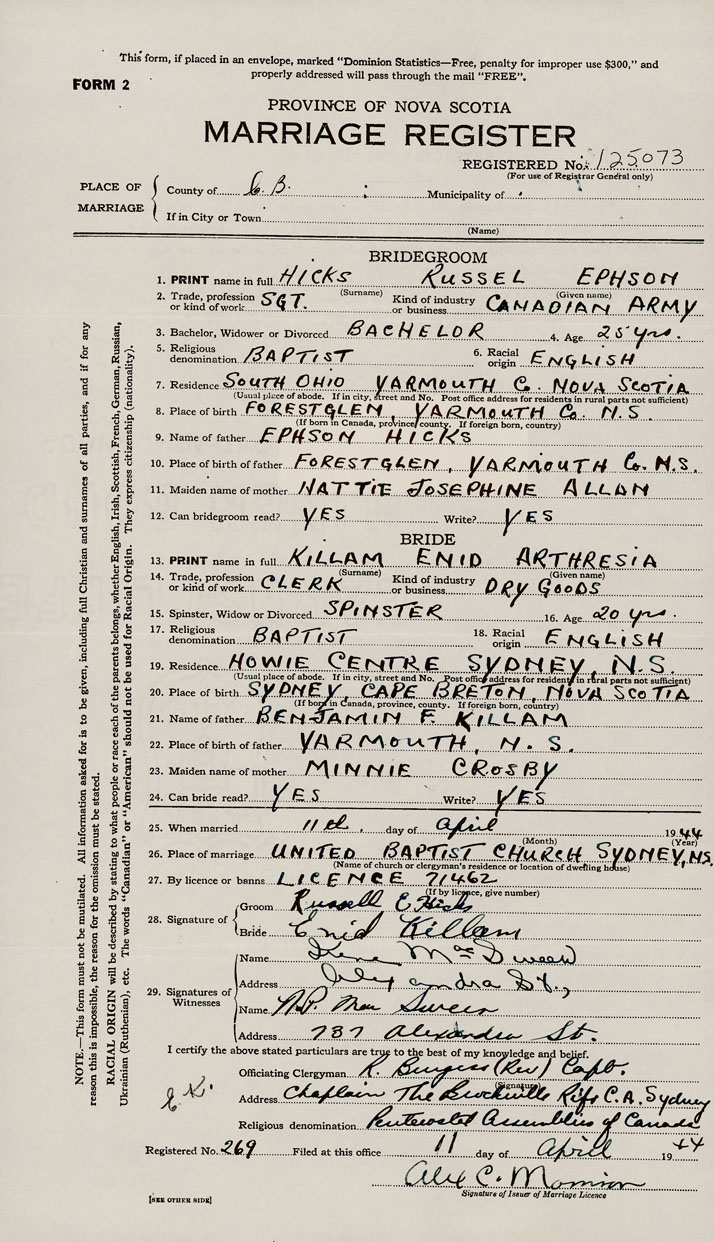 This form, if placed in an envelope, marked "Dominion Statistics—Free, penalty for improper use $300," and
properly addressed will pass through the mail "FREE".
FORM 2
PROVINCE OF NOVA SCOTIA
MARRIAGE REGISTER
REGISTERED No. 125073
(For use of Registrar General only)
PLACE OF MARRIAGE
County of C. B. Municipality of
If in City or Town
(Name)
BRIDEGROOM
1. PRINT name in full HICKS RUSSEL EPHSON
(Surname) (Given name)
2. Trade, profession or kind of work SGT. Kind of industry or business CANADIAN ARMY
3. Bachelor, Widower or Divorced BACHELOR 4. Age 25 yrs.
5. Religious denomination BAPTIST 6. Racial origin ENGLISH
7. Residence SOUTH OHIO YARMOUTH CO. NOVA SCOTIA
(Usual place of abode. If in city, street and No. Post office address for residents in rural parts not sufficient)
8. Place of birth FORESTGLEN, YARMOUTH CO. N.S.
(If born in Canada, province, county. If foreign born, country)
9. Name of father EPHSON HICKS
10. Place of birth of father FORESTGLEN, YARMOUTH Co. N.S.
11. Maiden name of mother HATTIE JOSEPHINE ALLAN
12. Can bridegroom read? YES Write? YES
BRIDE
13. PRINT name in full KILLAM ENID ARTHRESIA
(Surname) (Given name)
14. Trade, profession or kind of work CLERK Kind of industry or business DRY GOODS
15. Spinster, Widow or Divorced SPINSTER 16. Age 20 yrs.
17. Religious denomination BAPTIST 18. Racial origin ENGLISH
19. Residence HOWIE CENTRE SYDNEY, N.S.
(Usual place of abode. If in city, street and No. Post office address for residents in rural parts not sufficient)
20. Place of birth SYDNEY, CAPE BRETON, NOVA SCOTIA
(If born in Canada, province, county. If foreign born, country)
21. Name of father BENJAMIN F. KILLAM
22. Place of birth of father YARMOUTH, N.S.
23. Maiden name of mother MINNIE CROSBY
24. Can bride read? YES Write? YES
25. When married 11th, day of April 1944
(Month) (Year)
26. Place of marriage UNITED BAPTIST CHURCH SYDNEY, N.S.
(Name of church or clergyman's residence or location of dwelling house)
27. By licence or banns LICENCE 71462
(If by licence, give number)
28. Signature of
Groom Russell E Hicks
Bride Enid Killam
29. Signatures of Witnesses
Name Irene MacSween
Address Alexandra St.,
Name N.P. MacSween
Address 737 Alexandra St.
I certify the above stated particulars are true to the best of my knowledge and belief.
Officiating Clergyman R. Burgess (Rev) Capt.
(Signature)
Address Chaplain The Brockville Rifs C.A. Sydney
Religious denomination Pentecostal Assemblies of Canada
Registered No. 269 Filed at this office 11 day of April 1944
Alex C. Morrison
Signature of Issuer of Marriage Licence
[SEE OTHER SIDE]
NOTE.—This form must not be mutilated. All information asked for is to be given, including full Christian and surnames of all parties, and if for any
reason this is impossible, the reason for the omission must be stated.
RACIAL ORIGIN will be described by stating to what people or race each of the parents belongs, whether English, Irish, Scottish, French, German, Russian,
Ukrainian (Ruthenian), etc. The words "Canadian" or "American" should not be used for Racial Origin. They express citizenship (nationality).